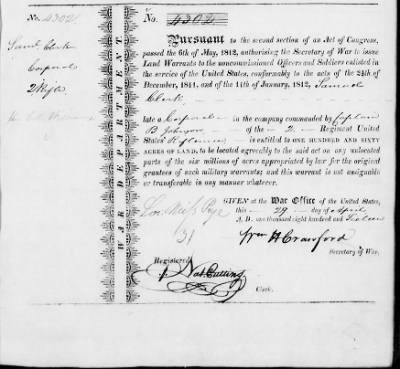 No. 4302
Saml Clark
Corporal
2 Rifle
WAR DEPARTMENT
No. 4302
Pursuant to the second section of an Act of Congress,
passed the 6th of May, 1812, authorising the Secretary of War to issue
Land Warrants to the noncommissioned Officers and Soldiers enlisted in
the service of the United States, conformably to the acts of the 24th of
December, 1811, and of the 11th of January, 1812, Samuel
Clark
late a Corporal in the company commanded by Captain
B Johnson of the 2 Regiment United
States' Riflemen
is entitled to ONE HUNDRED AND SIXTY
ACRES OF LAND, to be located agreeably to the said act on any unlocated
parts of the six millions of acres appropriated by law for the original
grantees of such military warrants; and this warrant is not assignable
or transferable in any manner whatever.
GIVEN at the War Office of the United States,
this 29 day of April
A. D. one thousand eight hundred and
Page
131
Wm H Crawford
Secretary of War.
Registered
Nat. Cutting
Clerk.